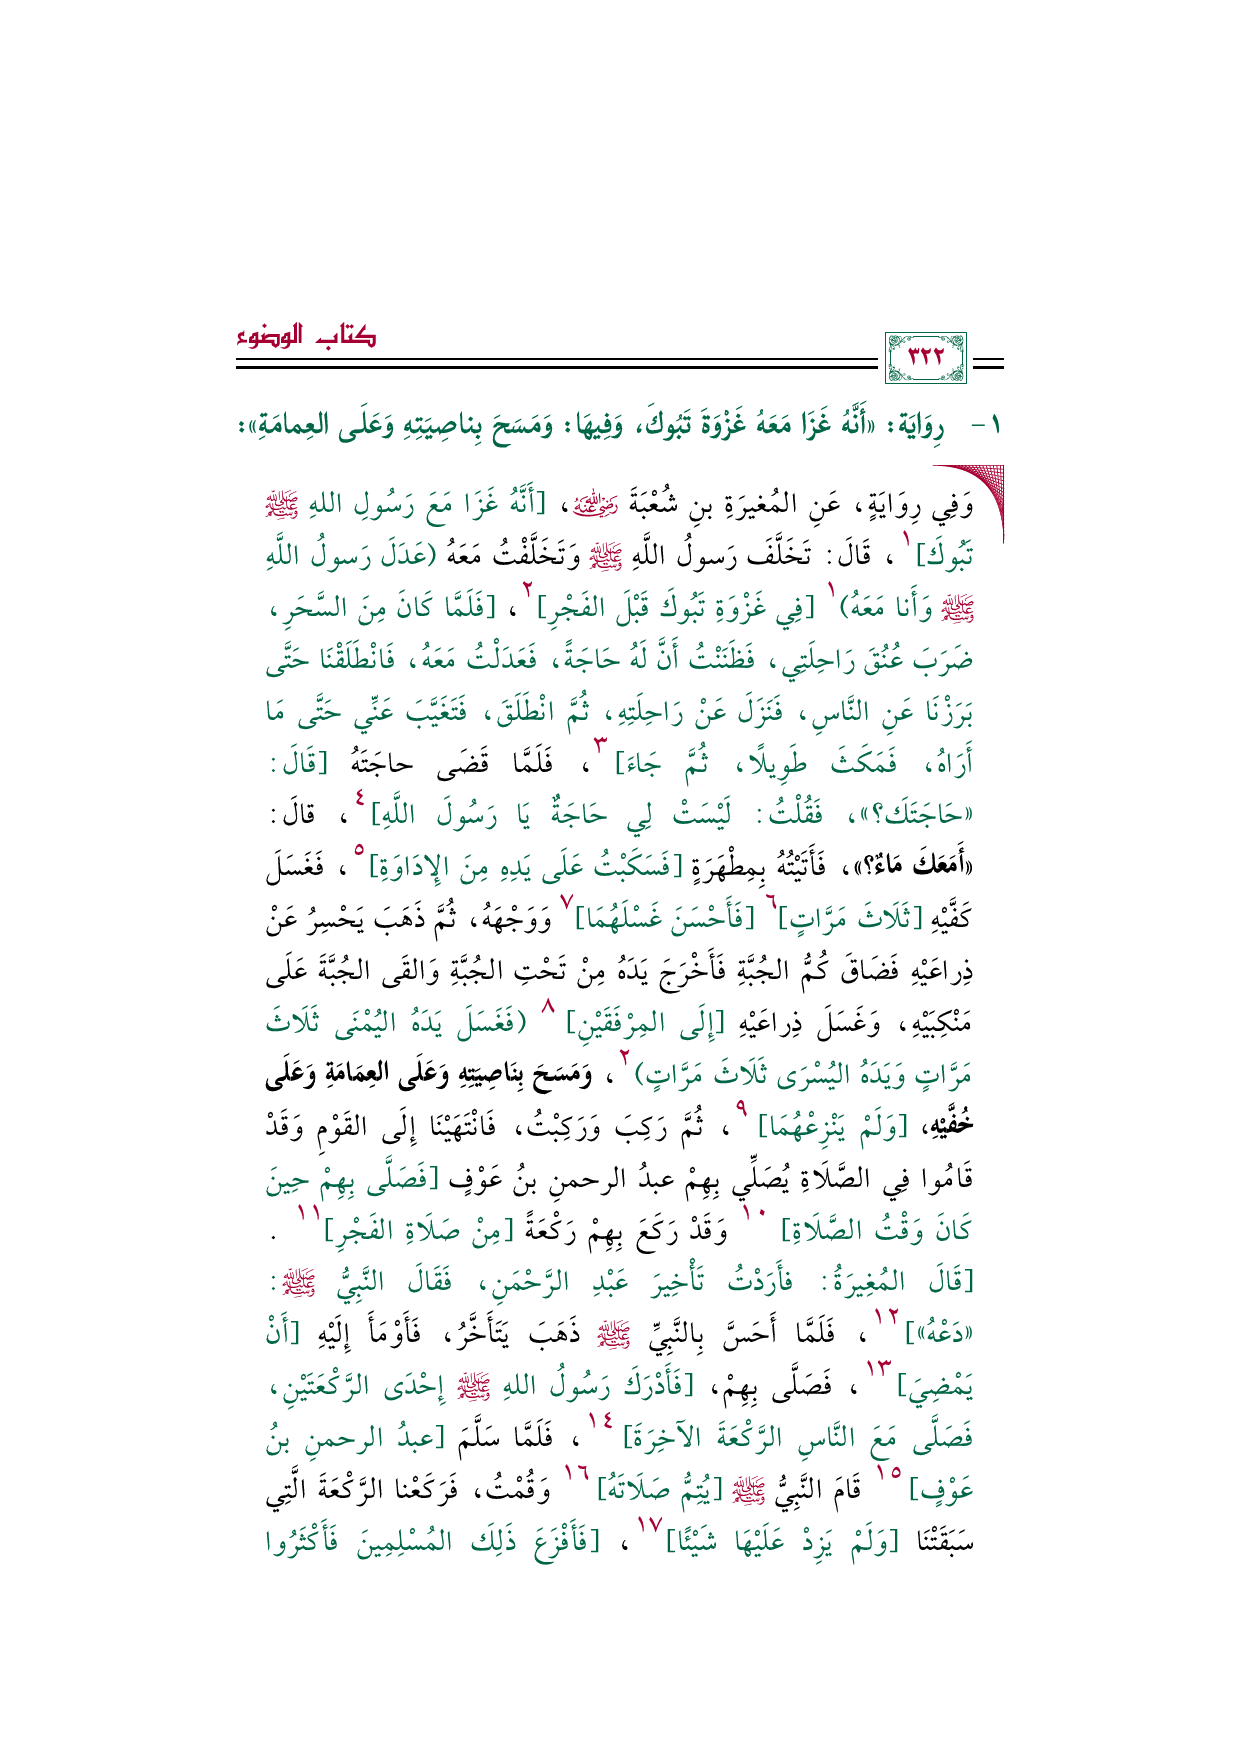 كتاب الوضوء
٣٢٢
١- رِوَايَة: «أَنَّهُ غَزَا مَعَهُ غَزْوَةَ تَبُوكَ، وَفِيهَا: وَمَسَحَ بِناصِيَتِهِ وَعَلَى العِمامَةِ»:
وَفِي رِوَايَةٍ، عَنِ المُغيرَةِ بنِ شُعْبَةَ ﵁، [أَنَّهُ غَزَا مَعَ رَسُولِ اللهِ ﷺ
تَبُوكَ]١، قَالَ: تَخَلَّفَ رَسولُ اللَّهِ ﷺ وَتَخَلَّفْتُ مَعَهُ (عَدَلَ رَسولُ اللَّهِ
ﷺ وَأَنا مَعَهُ)١ [فِي غَزْوَةِ تَبُوكَ قَبْلَ الفَجْرِ]٢، [فَلَمَّا كَانَ مِنَ السَّحَرِ،
ضَرَبَ عُنُقَ رَاحِلَتِي، فَظَنَنْتُ أَنَّ لَهُ حَاجَةً، فَعَدَلْتُ مَعَهُ، فَانْطَلَقْنَا حَتَّى
بَرَزْنَا عَنِ النَّاسِ، فَنَزَلَ عَنْ رَاحِلَتِهِ، ثُمَّ انْطَلَقَ، فَتَغَيَّبَ عَنِّي حَتَّى مَا
أَرَاهُ، فَمَكَثَ طَوِيلًا، ثُمَّ جَاءَ]٣، فَلَمَّا قَضَى حاجَتَهُ [قَالَ:
«حَاجَتَكَ؟»، فَقُلْتُ: لَيْسَتْ لِي حَاجَةٌ يَا رَسُولَ اللَّهِ]٤، قالَ:
«أَمَعَكَ مَاءٌ؟»، فَأَتَيْتُهُ بِمِطْهَرَةٍ [فَسَكَبْتُ عَلَى يَدِهِ مِنَ الإِدَاوَةِ]٥، فَغَسَلَ
كَفَّيْهِ [ثَلَاثَ مَرَّاتٍ]٦ [فَأَحْسَنَ غَسْلَهُمَا]٧ وَوَجْهَهُ، ثُمَّ ذَهَبَ يَحْسِرُ عَنْ
ذِراعَيْهِ فَضَاقَ كُمُّ الجُبَّةِ فَأَخْرَجَ يَدَهُ مِنْ تَحْتِ الجُبَّةِ وَالقَى الجُبَّةَ عَلَى
مَنْكِبَيْهِ، وَغَسَلَ ذِراعَيْهِ [إِلَى المِرْفَقَيْنِ]٨ (فَغَسَلَ يَدَهُ اليُمْنَى ثَلَاثَ
مَرَّاتٍ وَيَدَهُ اليُسْرَى ثَلَاثَ مَرَّاتٍ)٢، وَمَسَحَ بِنَاصِيَتِهِ وَعَلَى العِمَامَةِ وَعَلَى
خُفَّيْهِ، [وَلَمْ يَنْزِعْهُمَا]٩، ثُمَّ رَكِبَ وَرَكِبْتُ، فَانْتَهَيْنَا إِلَى القَوْمِ وَقَدْ
قَامُوا فِي الصَّلَاةِ يُصَلِّي بِهِمْ عبدُ الرحمنِ بنُ عَوْفٍ [فَصَلَّى بِهِمْ حِينَ
كَانَ وَقْتُ الصَّلَاةِ]١٠ وَقَدْ رَكَعَ بِهِمْ رَكْعَةً [مِنْ صَلَاةِ الفَجْرِ]١١.
[قَالَ المُغِيرَةُ: فأَرَدْتُ تَأْخِيرَ عَبْدِ الرَّحْمَنِ، فَقَالَ النَّبِيُّ ﷺ:
«دَعْهُ»]١٢، فَلَمَّا أَحَسَّ بِالنَّبِيِّ ﷺ ذَهَبَ يَتَأَخَّرُ، فَأَوْمَأَ إِلَيْهِ [أَنْ
يَمْضِيَ]١٣، فَصَلَّى بِهِمْ، [فَأَدْرَكَ رَسُولُ اللهِ ﷺ إِحْدَى الرَّكْعَتَيْنِ،
فَصَلَّى مَعَ النَّاسِ الرَّكْعَةَ الآخِرَةَ]١٤، فَلَمَّا سَلَّمَ [عبدُ الرحمنِ بنُ
عَوْفٍ]١٥ قَامَ النَّبِيُّ ﷺ [يُتِمُّ صَلَاتَهُ]١٦ وَقُمْتُ، فَرَكَعْنا الرَّكْعَةَ الَّتِي
سَبَقَتْنَا [وَلَمْ يَزِدْ عَلَيْهَا شَيْئًا]١٧، [فَأَفْزَعَ ذَلِكَ المُسْلِمِينَ فَأَكْثَرُوا